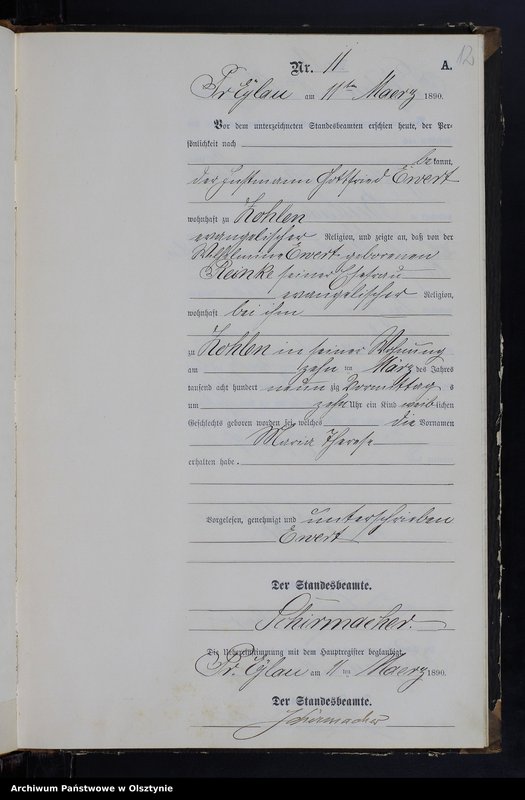 12
Nr. 11 A.
Pr Eylau am 11ten Maerz 1890.
Vor dem unterzeichneten Standesbeamten erschien heute, der Per-
sönlichkeit nach
bekannt,
der Instmann Gottfried Ewert
wohnhaft zu Kohlen
evangelischer Religion, und zeigte an, daß von der
Wilhelmine Ewert geborenen
Reinke seiner Ehefrau
evangelischer Religion,
wohnhaft bei ihm
zu Kohlen in seiner Wohnung
am zehn ten März des Jahres
tausend acht hundert neun zig Vormittag s
um zehn Uhr ein Kind weiblichen
Geschlechts geboren worden sei, welches die Vornamen
Maria Therese
erhalten habe.
Vorgelesen, genehmigt und unterschrieben
Ewert
Der Standesbeamte.
Schirmacher.
Die Uebereinstimmung mit dem Hauptregister beglaubigt.
Pr. Eylau am 11 ten Maerz 1890.
Der Standesbeamte.
Schirmacher
Archiwum Państwowe w Olsztynie